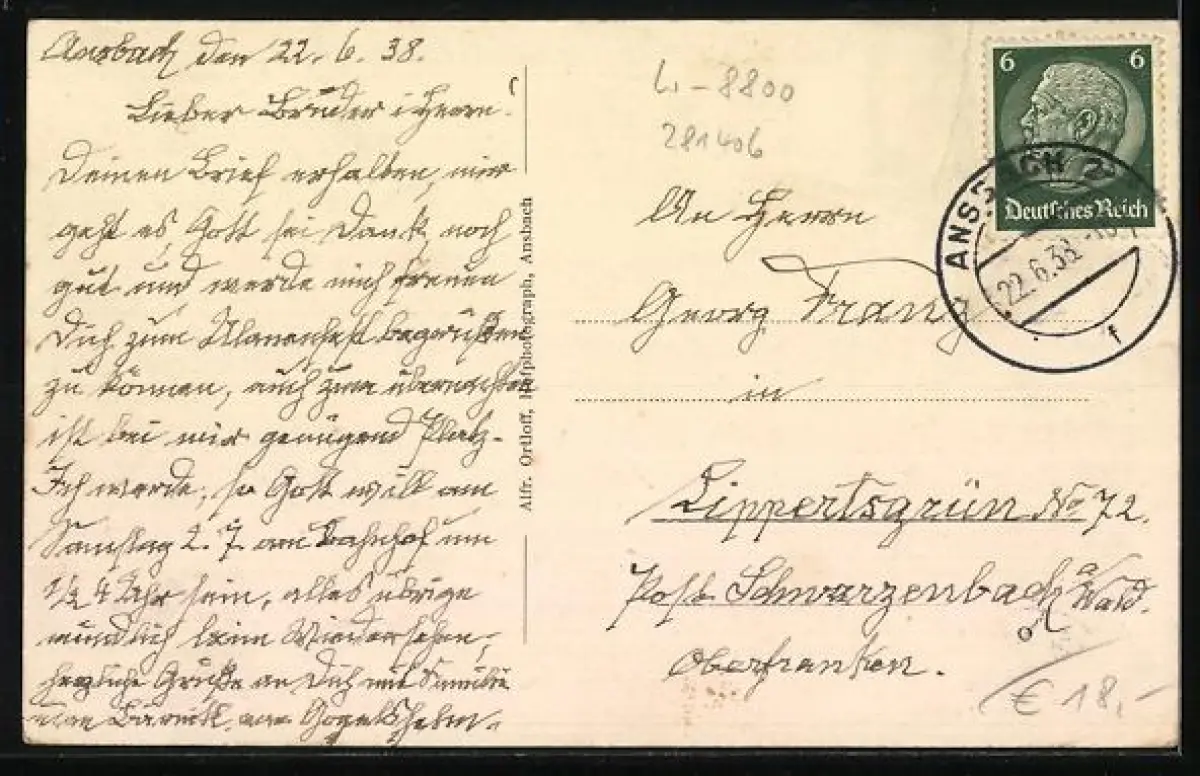 Ansbach den 22. 6. 38.
Lieber Bruder i Herrn!
Deinen Brief erhalten, mir
geht es, Gott sei Dank noch
gut und werde mich freuen
Dich zum Ulanenfest begrüßen
zu können, auch zum übernachten
ist bei mir genügend Platz.
Ich werde, so Gott will am
Samstag 2. 7. am Bahnhof um
1/2 4 Uhr sein, alles übrige
mündlich beim Wiedersehen,
herzliche Grüße an Dich mit Familie
Alfr. Ortloff, Hofphotograph, Ansbach
W-8800
281406
6 6
Deutsches Reich
ANSBACH 2
22.6.38
f
An Herrn
Georg Franz
in
Lippertsgrün No 72.
Post Schwarzenbach a/Wald.
Oberfranken.
€ 18,-